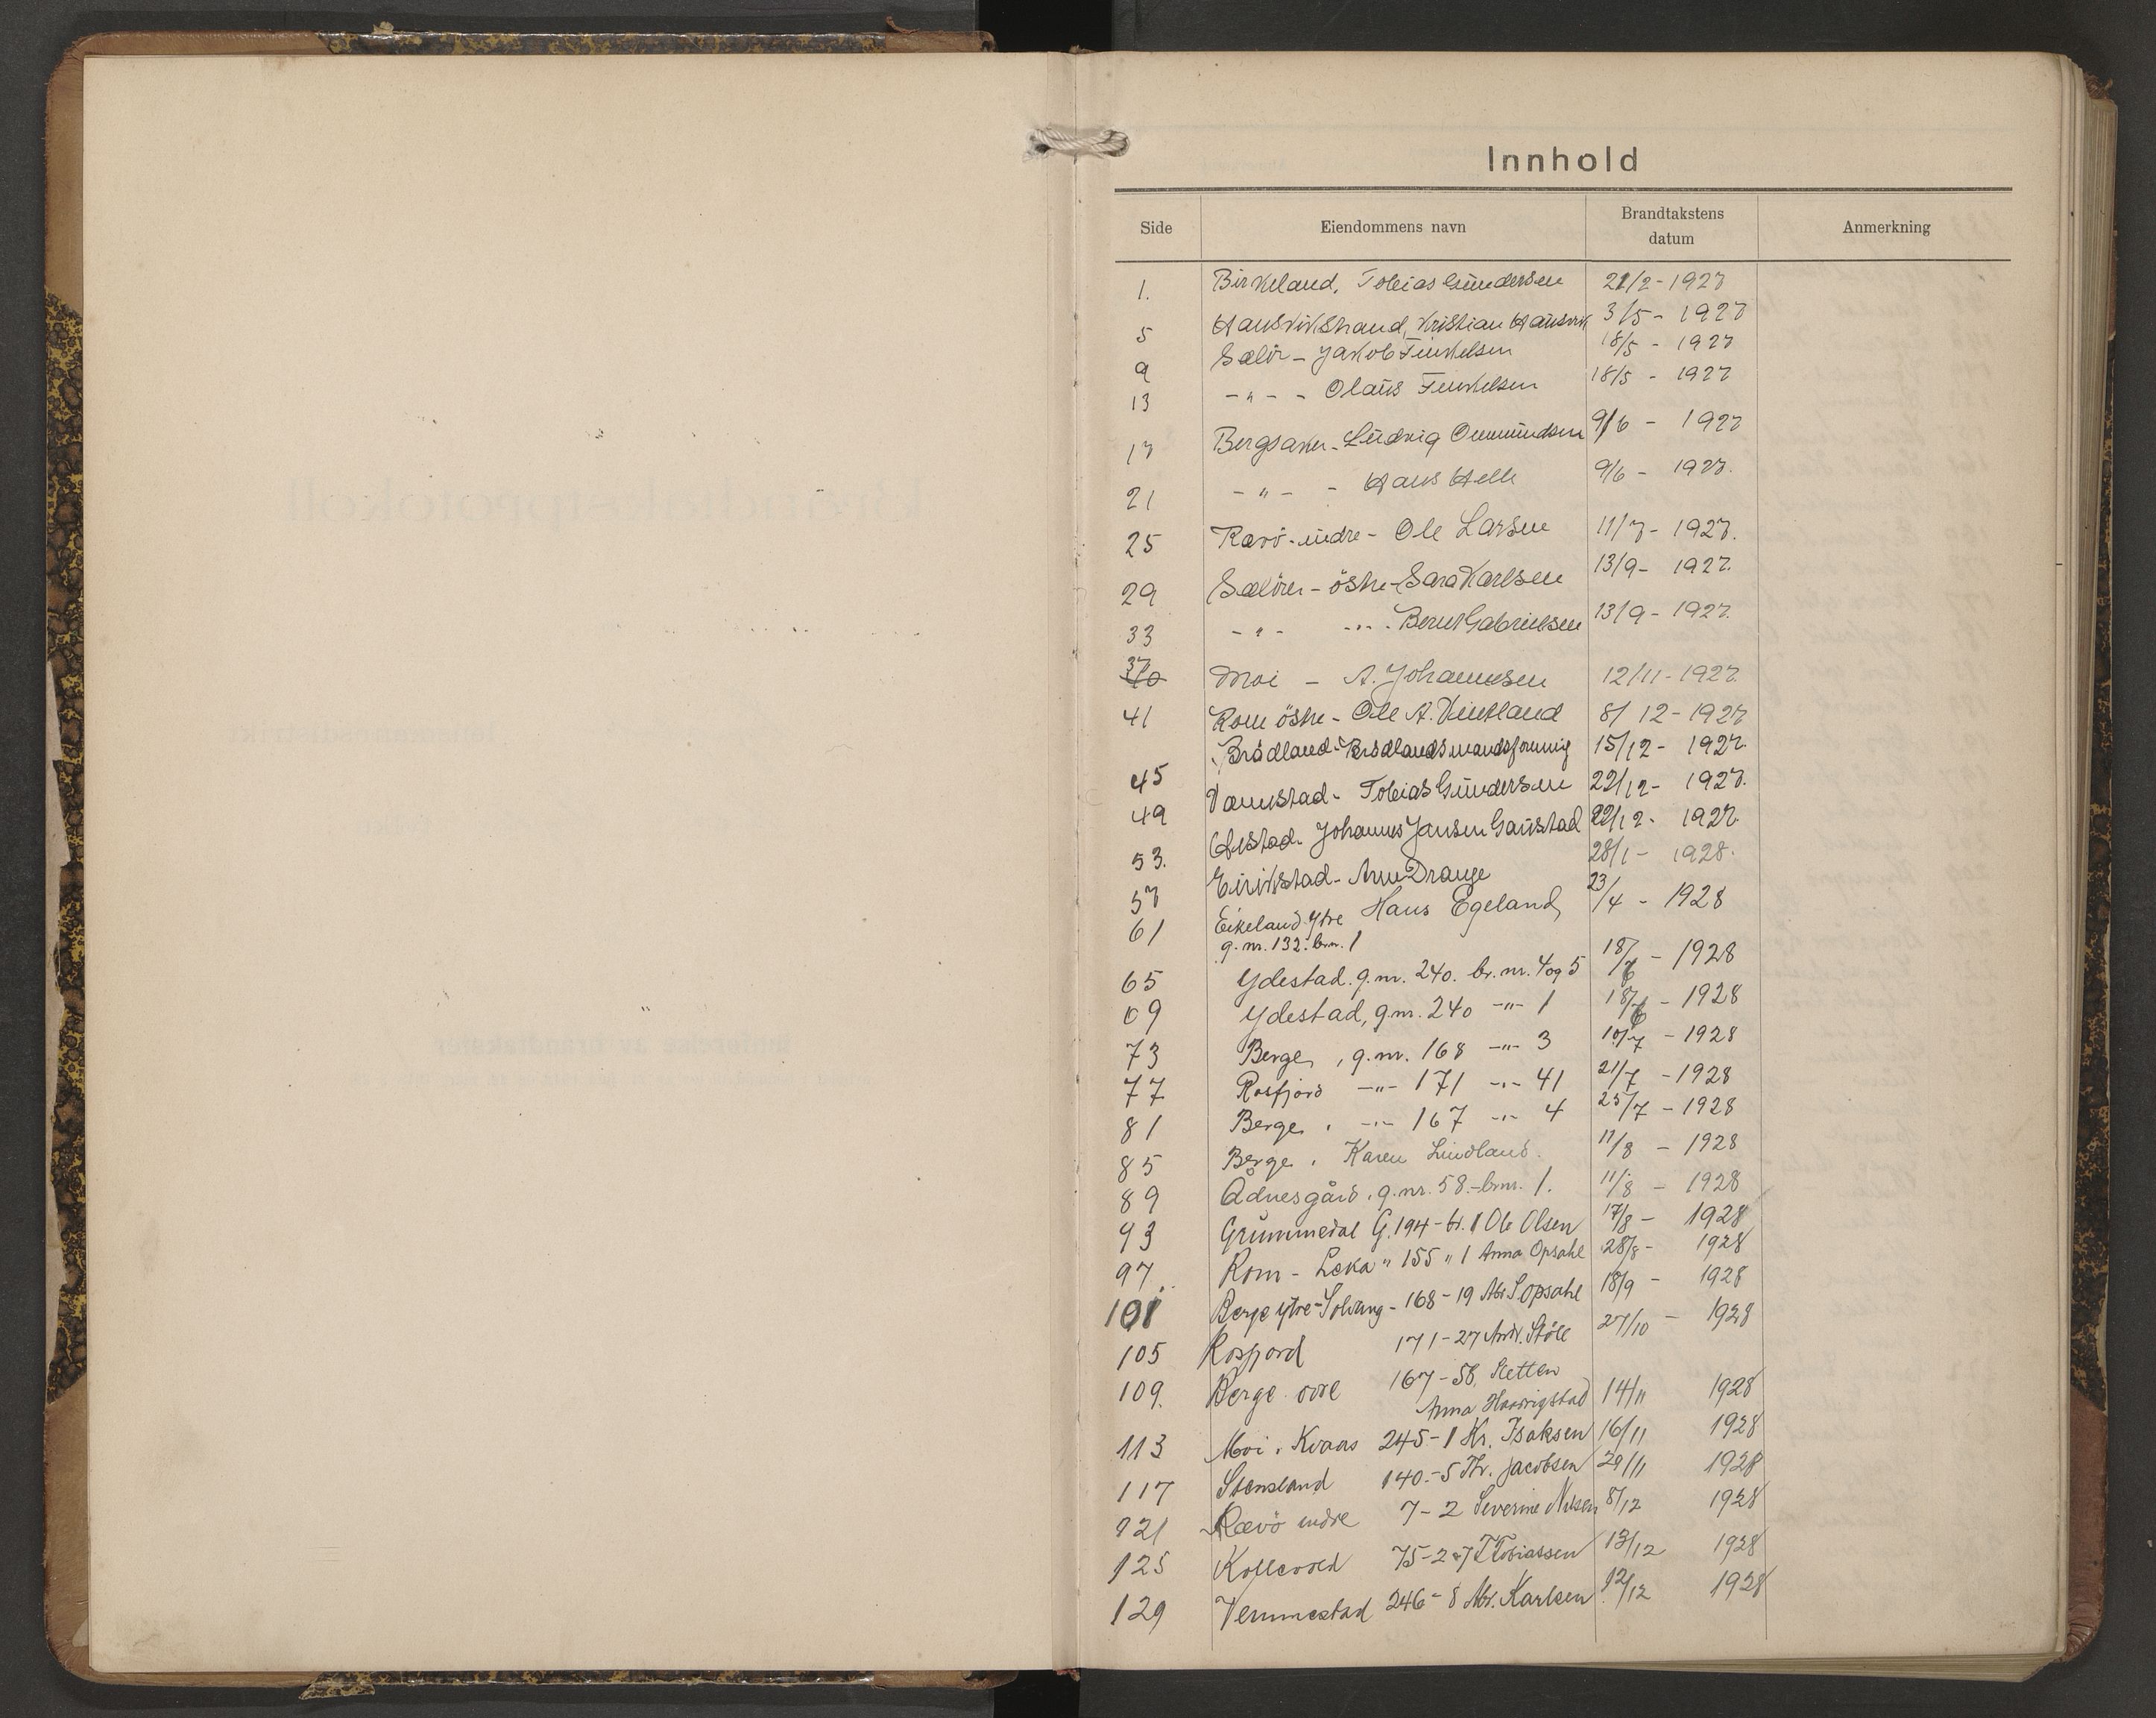 Innhold
Side Eiendommens navn Brandtakstens datum Anmerkning
1. Birkeland, Tobias Gundersen 21/2 - 1927
5 Hausvikstrand, Kristian Hausvik 3/5 - 1927
9 Sælör - Jakob Tenkelsen 18/5 - 1927
13 - " - - Olaus Tenkelsen 18/5 - 1927
17 Bergsaker - Ludvig Ommundsen 9/6 - 1927
21 - " - - Hans Helle 9/6 - 1927.
25 Rævö - indre - Ole Larsen 11/7 - 1927.
29 Sælörer - östre - Sara Karlsen 13/9 - 1927.
33 - " - - " - Bernt Gabrielsen 13/9 - 1927.
37 Moi - A. Johannesen 12/11 - 1927.
41 Rom östre - Ole A. Vintland 8/12 - 1927
45 Brådland - Brådlands mandsforening 15/12 - 1927.
49 Vemestad - Tobias Gundersen 22/12 - 1927.
53. Johannes Jansen Gaustad 22/12 - 1927.
57 Eirikstad - Arne Drange 28/1 - 1928.
61 Eikeland ytre Hans Egeland 23/4 - 1928
g. nr. 132. brn. 1
65 Ydestad. g. nr. 240. br. nr. 4 og 5 18/6 - 1928
69 Ydestad, g. nr. 240 -"- 1 18/6 - 1928
73 Berge, g. nr. 168 -"- 3 10/7 - 1928
77 Rosfjord -"- 171 -"- 41 21/7 - 1928
81 Berge, -"- 167 -"- 4 25/7 - 1928
85 Berge, Karen Lindland. 11/8 - 1928
89 Ådnesgård, g. nr. 58. - brnr. 1. 11/8 - 1928
93 Grummedal G. 194 - br. 1 Ole Olsen 17/8 - 1928
97 Rom - Leka " 155 " 1 Anna Opsahl 28/8 - 1928
101 Berge ytre - Solvang - 168 - 19 Abr. S. Opsahl 18/9 - 1928
105 Rosfjord 171 - 27 Andr. Stöle 27/10 - 1928
109. Berge övre 167 - 58, Sletten
Anna Haavrigstad 14/11 1928
113 Moi, Kvaas 245 - 1 Kr. Isaksen 16/11 1928
117 Stensland 140. - 5 Th. Jacobsen 29/11 1928
121 Rævö indre 7 - 2 Severine Nilsen 8/12 1928
125 Kollevold 75 - 2 & 7 T Tobiassen 13/12 1928
129 Vemmestad 246 - 8 Abr. Karlsen 12/12 1928